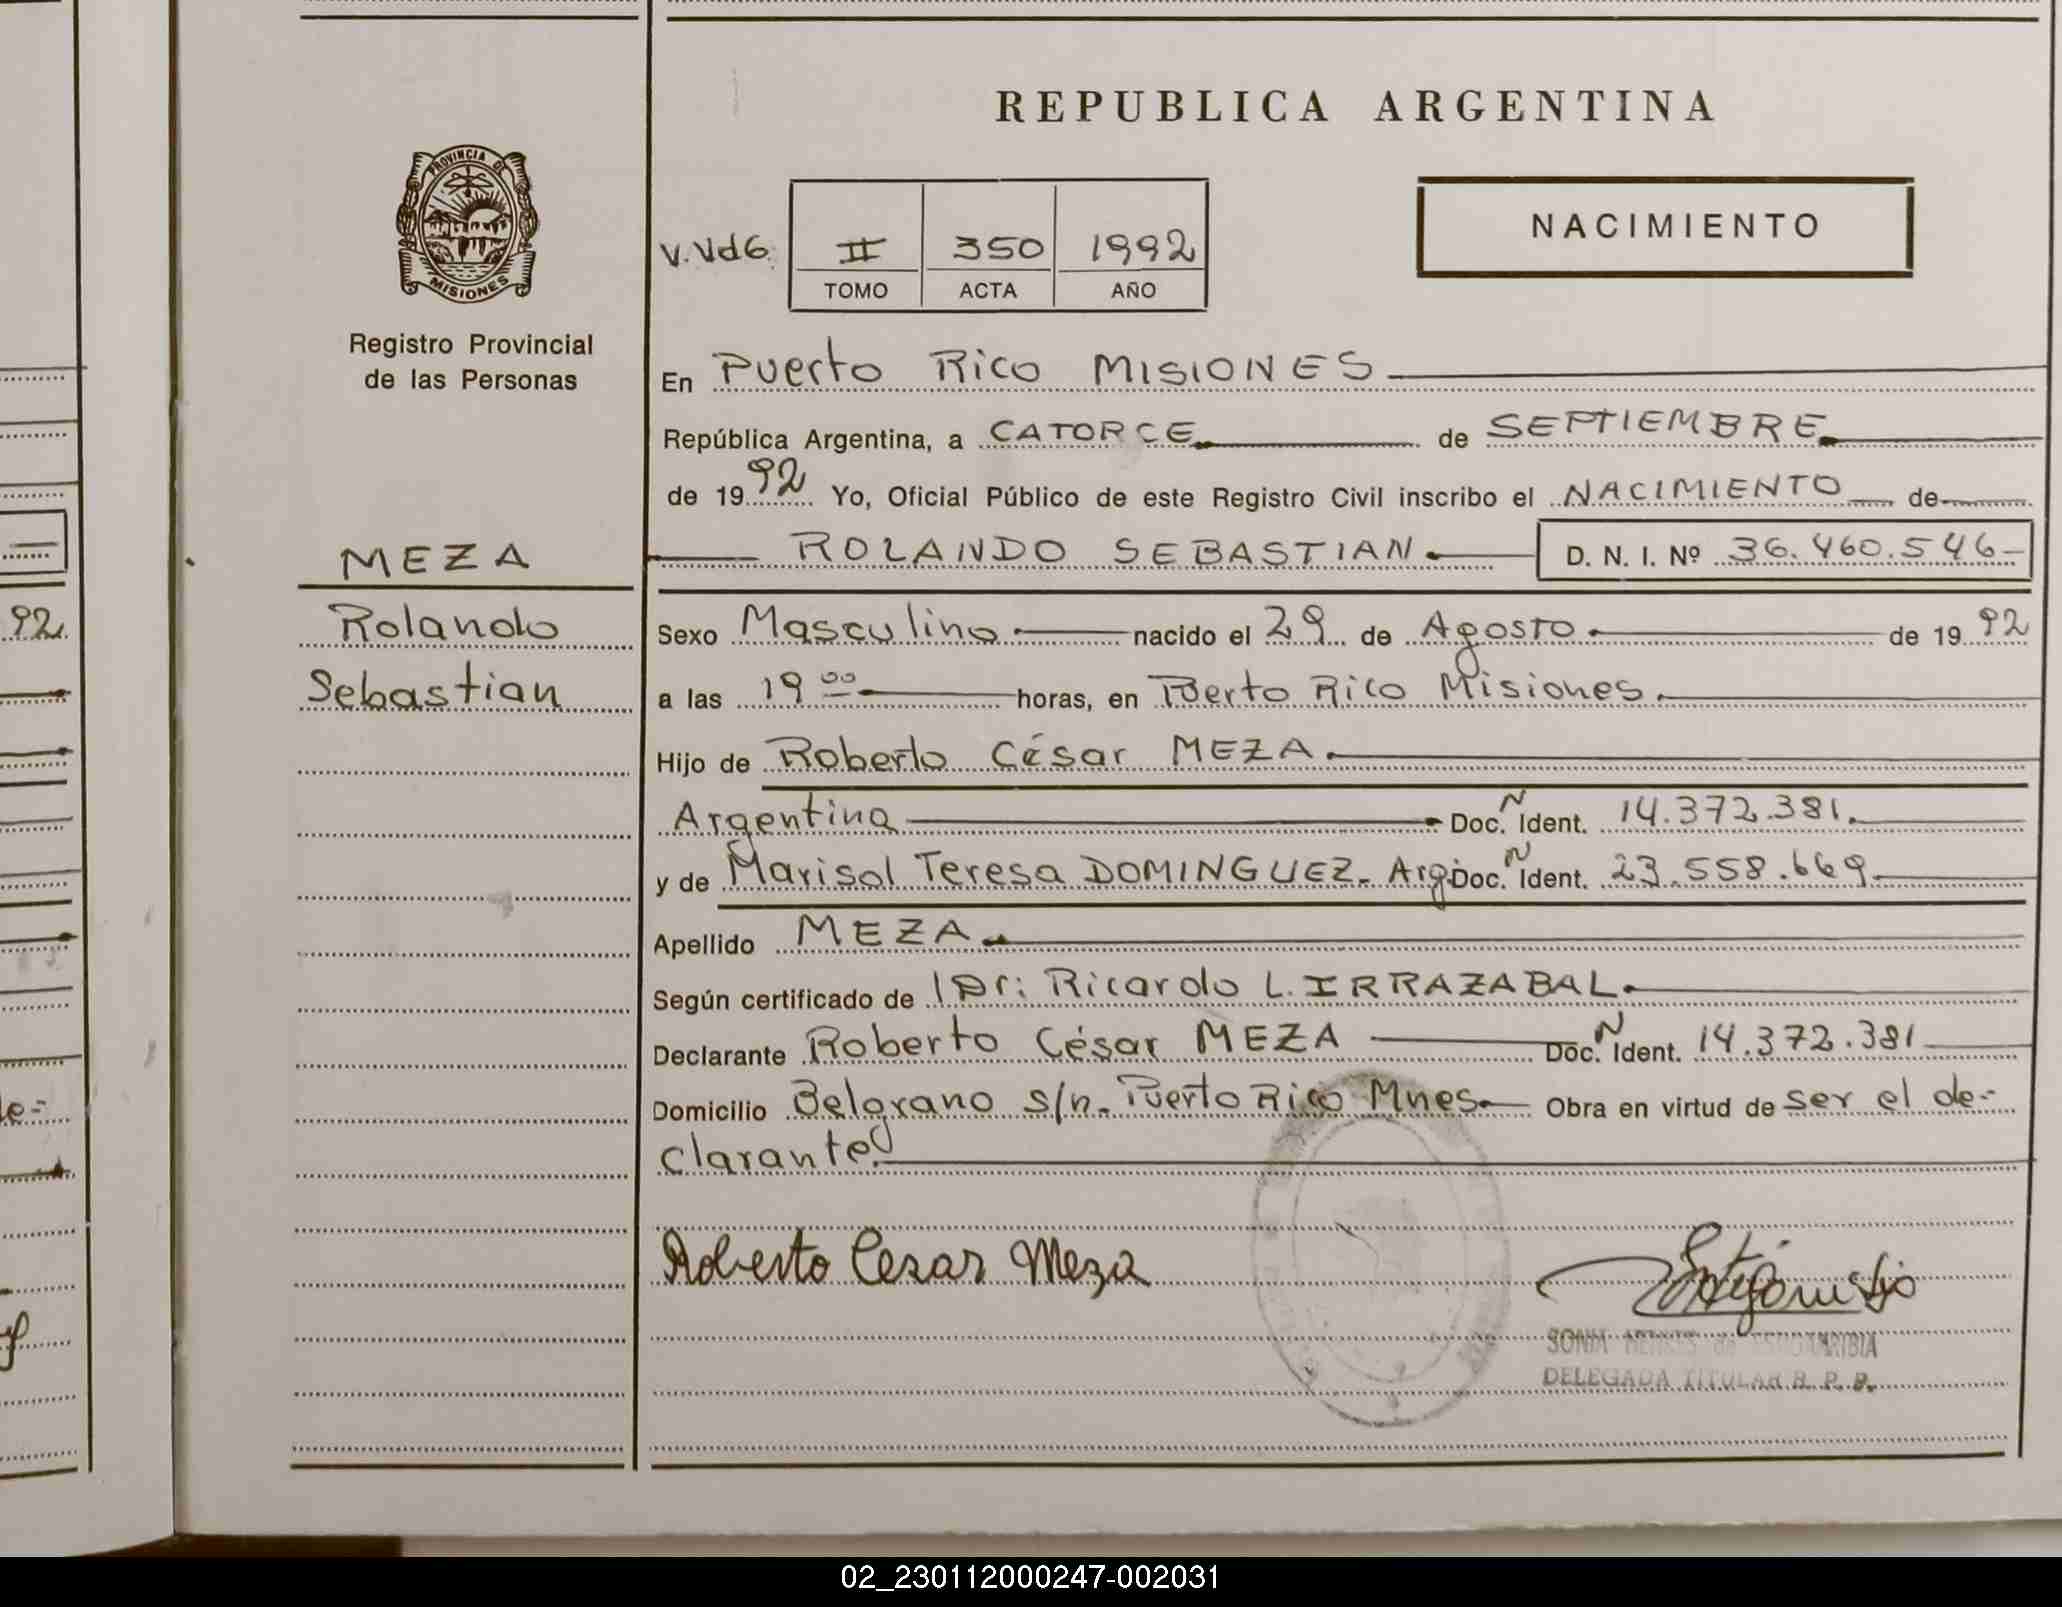 REPUBLICA ARGENTINA
PROVINCIA DE
MISIONES
Registro Provincial
de las Personas
NACIMIENTO
V.Vd6 II 350 1992
TOMO ACTA AÑO
En Puerto Rico MISIONES
República Argentina, a CATORCE de SEPTIEMBRE
de 1992 Yo, Oficial Público de este Registro Civil inscribo el NACIMIENTO de
ROLANDO SEBASTIAN D. N. I. Nº 36.460.546
MEZA
Rolando
Sebastian
Sexo Masculino nacido el 29 de Agosto de 1992
a las 19 00 horas, en Puerto Rico Misiones.
Hijo de Roberto César MEZA.
Argentina Doc. N Ident. 14.372.381.
y de Marisol Teresa DOMINGUEZ. Arg. Doc. N Ident. 23.558.669.
Apellido MEZA.
Según certificado de Dr: Ricardo L. IRRAZABAL.
Declarante Roberto César MEZA Doc. N Ident. 14.372.381
Domicilio Belgrano s/n. Puerto Rico Mnes. Obra en virtud de ser el de-
clarante.
Roberto Cesar Meza
SONIA de
DELEGADA TITULAR R. P. P.
92
le=
02_230112000247-002031